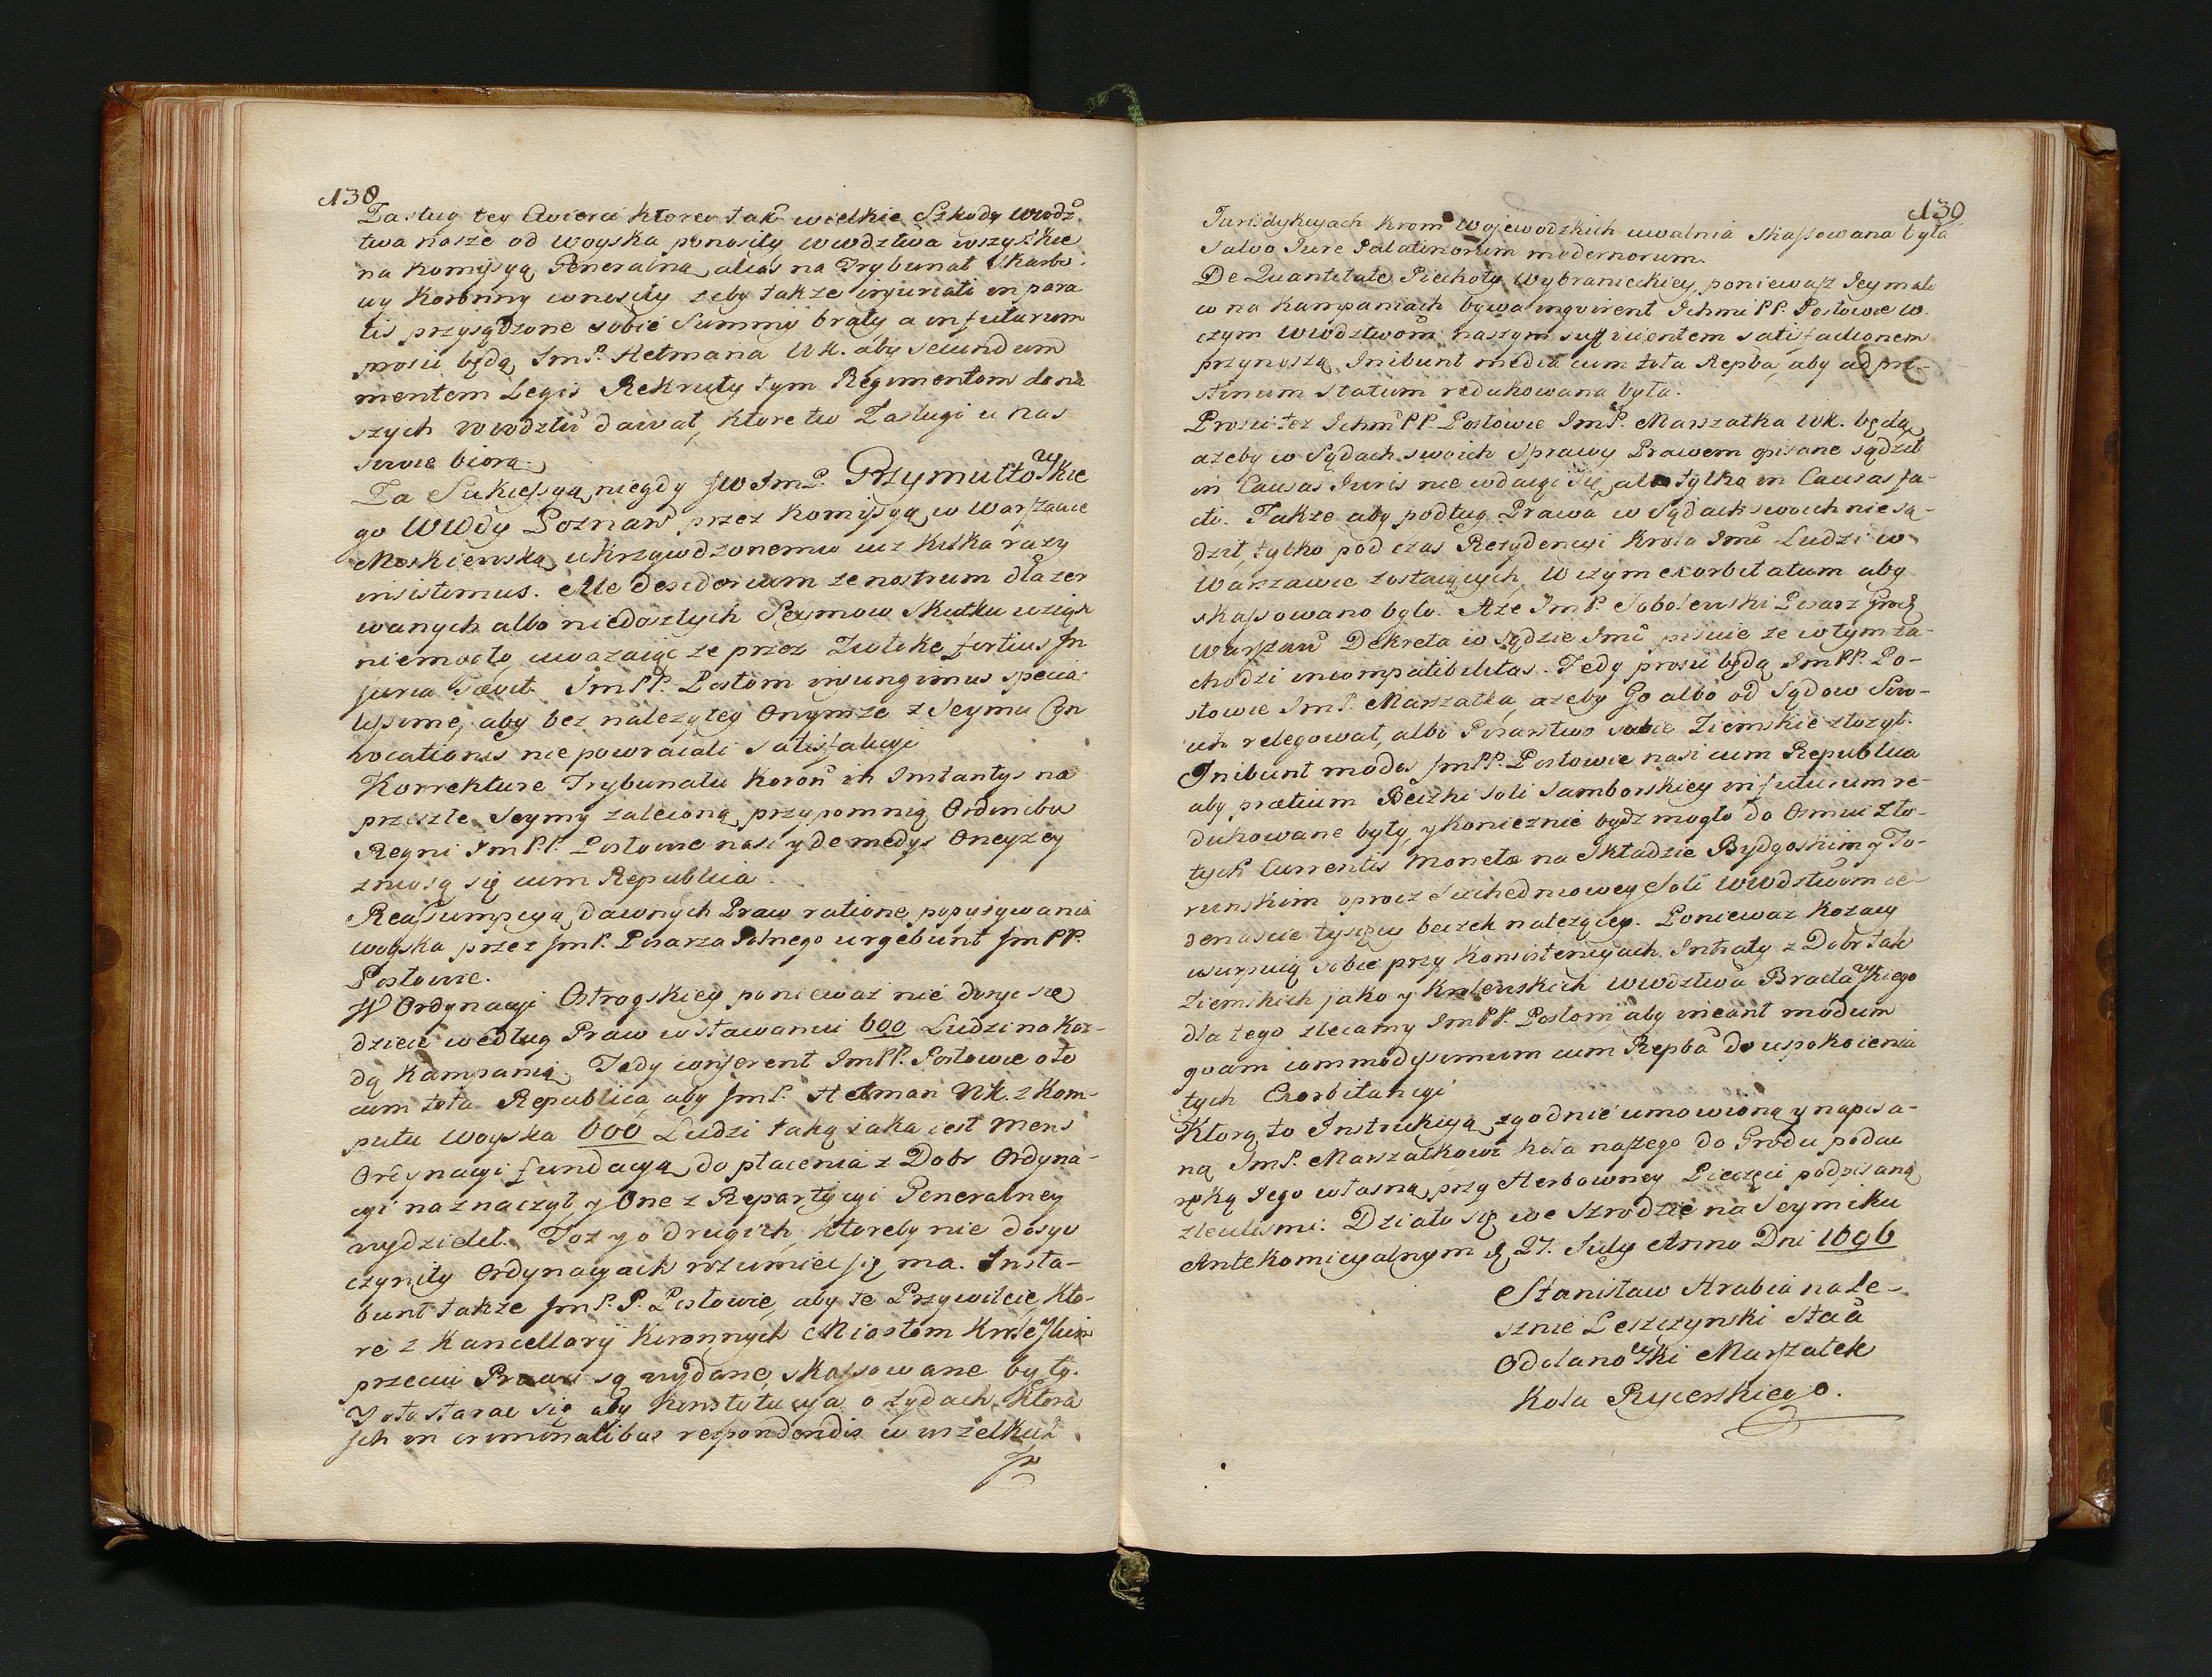 138
Zasług tey Cwierci ktorey tak wielkie Szkody wwdz
twa nasze od woyska ponosiły wwdztwa wszystkie
na Komissyą Generalną alias na Trybunał Skarbo-
wy Koronny wnosiły zeby takze injuriati in para
tis przysądzone sobie Summy brały a in futurum
prosić będą ImP. Hetmana WK. aby secundum
mentem Legis Rekruty tym Regimentom do na
szych wwdztw dawał, ktore tu Zasługi u nas
swoie biorą.
Za Sukcessyą niegdy JW ImP. Grzymułtowskie
go WWdy Poznan przez Komissyą w Warszawie
Moskiewską ukrzywdzonemu iuz kilka razy
insistimus. Ale desiderium ze nostrum dla zer
wanych albo niedoszłych Seymow skutku wziąć
niemogło, uwazaiąc ze przez Zwłokę fortius In
juria sævit ImPP. Posłom iniungimus specia
lissime, aby bez nalezytey Onymze z Seymu Con
vocationis nie powracali satisfakcyi
Korrekturę Trybunału Koron in Instantys na
przeszłe Seymy zaleconą przypomnią Ordinibus
Regni ImPP. Posłowie nasi y de medys Oneyzey
zniosą się cum Republica.
Reassumpcyą dawnych Praw ratione popisywania
woyska przez ImP. Pisarza Polnego urgebunt ImPP.
Posłowie.
W Ordynacyi Ostrogskiey poniewaz nie dosyc się
dzieie według Praw w stawaniu 600 Ludzi na Kaz-
dą Kampanią. Tedy conferent ImPP. Posłowie o to
cum tota Republica aby ImP. Hetman WK. z Kom-
putu woyska 600 Ludzi taką iaka iest mens
Ordynacyi fundacyą do płacenia z Dobr Ordyna-
cyi naznaczył, y One z Repartycyi Generalney
wydzielił. Toz y o drugich, ktoreby nie dosyc
czyniły Ordynacyach rozumiec się ma. Insta-
bunt takze ImP.P. Posłowie, aby te Przywileie, kto-
re z Kancellaryi Koronnych Miastom Krolewskim
przeciw Prawu są wydane, skassowane były.
Y o to starac się aby Konstytucya o Zydach ktora
ich in criminalibus respondendis w wszelkich
Ju
139
Jurisdykcyach krom Wojewodzkich uwalnia skassowana była
salvo Jure Palatinorum modernorum.
De Quantitate Piechoty Wybranieckiey, poniewasz Iey mało
co na Kampaniach bywa inquirent Ichmi PP. Posłowie w
czym Wwdztwom naszym sufficientem satisfactionem
przynoszą. Inibunt media cum tota Repba, aby ad pri-
stinum statum redukowana była.
Prosić tez Ichm PP. Posłowie ImP. Marszałka WK. będą
azeby w Sądach swoich Sprawy Prawem opisane sądził
in Causas Iuris nie wdaiąc się, ale tylko in Causas fa-
cti. Takze aby podług Prawa w Sądach swoich nie są-
dził, tylko pod czas Rezydencyi Krola Imci Ludzi w
Warszawie zostaiących, W czym exorbitatum aby
skassowano było. A ze ImP. Sobolewski Pisarz Grodz
Warszaw Dekreta w Sądzie Imci pisuie ze w tym za-
chodzi incompatibilitas. Tedy prosić będą ImPP. Po-
słowie ImP. Marszałka, azeby Go albo od Sądow Swo-
ich relegował, albo Pisarstwo sobie Ziemskie złozył.
Inibunt modos ImPP. Posłowie nasi cum Republica
aby prætium Beczki soli Samborskiey in futurum re-
dukowane były, y Koniecznie bydz mogło do Osmiu Zło-
tych Currentis Monetæ na Składzie Bydgoskim y To-
runskim oprocz Suchedniowey Soli wwdztwom ie-
denascie tysięcy beczek nalezącey. Poniewaz Kozacy
usurpuią sobie przy Konsistencyach Intraty z Dobr tak
Ziemskich jako y Krolewskich wwdztwa Bracławskiego
dla tego zlecamy ImPP. Posłom, aby ineant modum
quam commodissimum cum Repba do uspokoienia
tych Exorbitancyi
Ktorą to Instrukcyą zgodnie umowioną y napisa-
ną ImP. Marszałkowi Koła naszego do Grodu podać
ręką Iego własną przy Herbowney Pieczęci podpisaną
zleciliśmi. Działo się we Szrodzie na Seymiku
Antekomicyalnym d. 27. July Anno Dni 1696
Stanisław Hrabia na Le-
sznie Leszczynski Staa
Odolanowski Marszałek
Koła Rycerskiego.